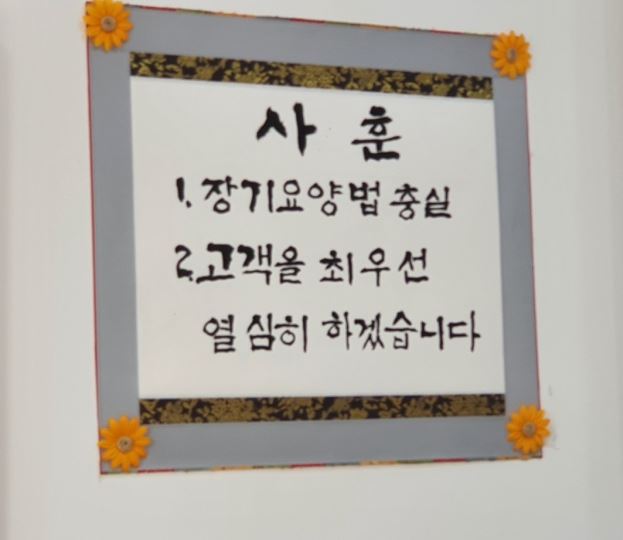 사 훈
1. 장기요양법 충실
2. 고객을 최우선
열심히 하겠습니다